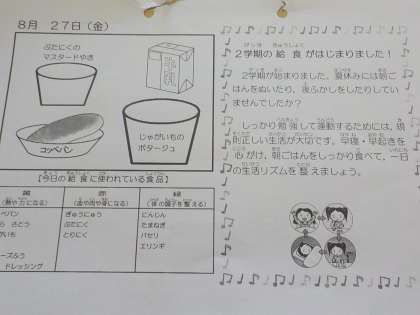 8月 27日(金)
ぶたにくの
マスタードやき
じゃがいもの
ポタージュ
コッペパン
【今日の給食に使われている食品】
黄 赤 緑
(熱や力になる) (血や肉や骨になる) (体の調子を整える)
ぎゅうにゅう にんじん
さとう ぶたにく たまねぎ
とりにく パセリ
エリンギ
ドレッシング
2学期の給食がはじまりました!
2学期が始まりました。夏休みには朝ご
はんをぬいたり、夜ふかしをしたりしてい
ませんでしたか?
しっかり勉強して運動するためには、規
則正しい生活が大切です。早寝・早起きを
心がけ、朝ごはんをしっかり食べて、一日
の生活リズムを整えましょう。